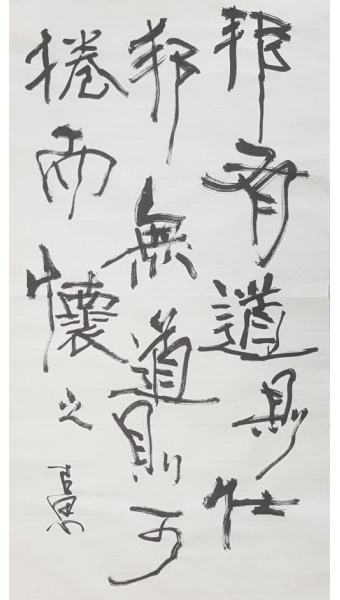 邦有道則仕
邦無道則可
捲而懷之